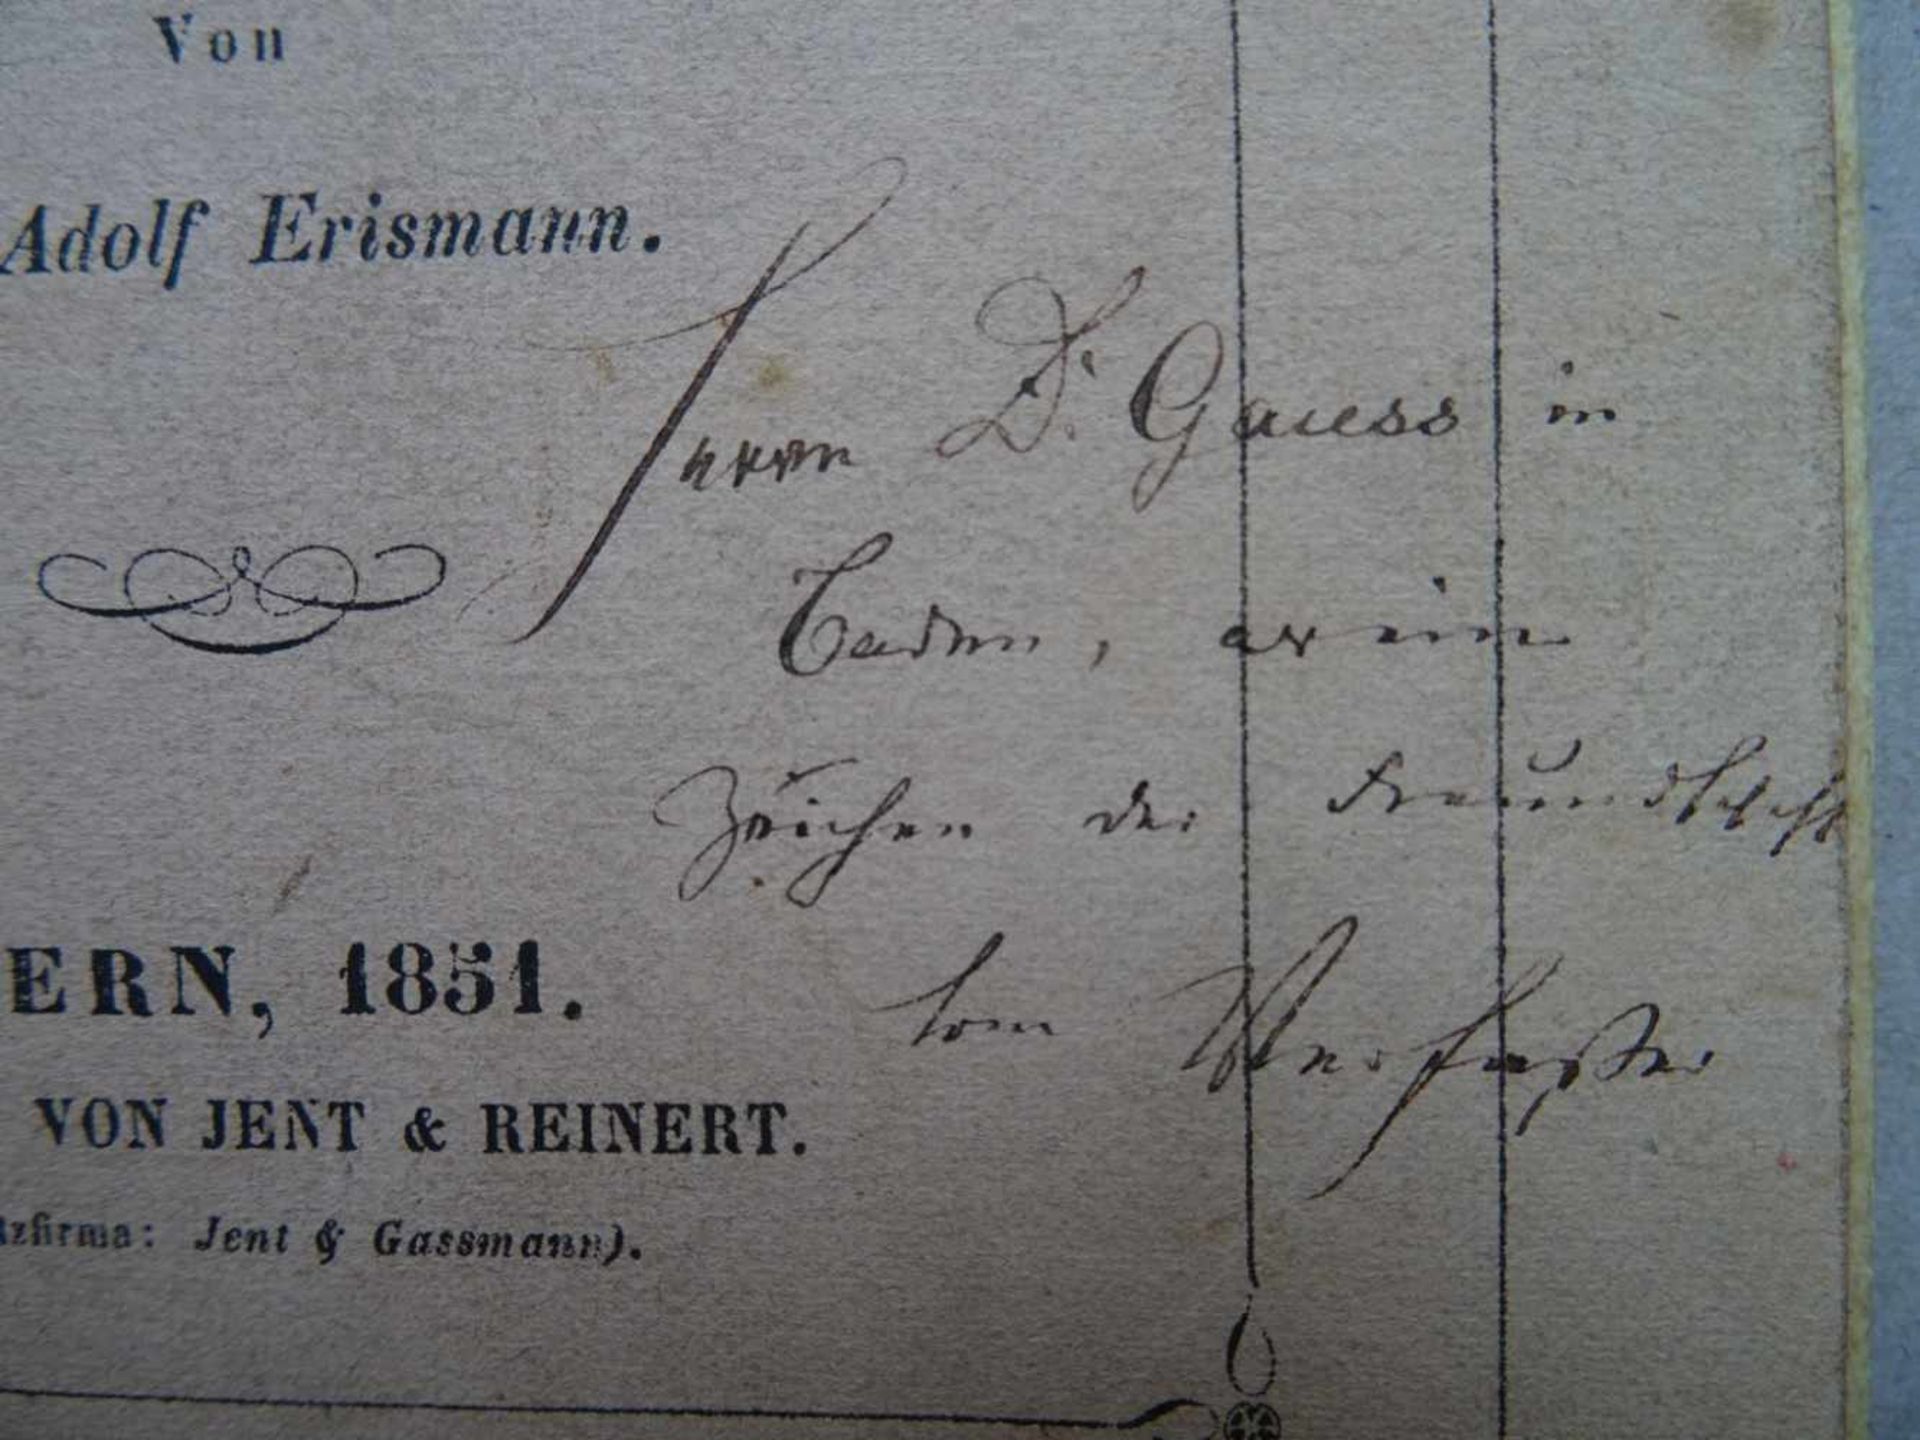 Von
Adolf Erismann.
Herrn Dr. Gauss in
Baden, als ein
Zeichen der Freundschaft
vom Verfaßer
ERN, 1851.
VON JENT & REINERT.
tzfirma: Jent & Gassmann).